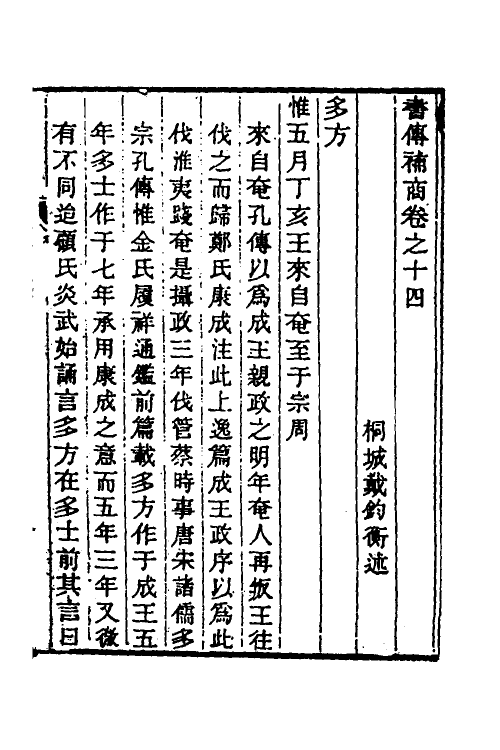 書傳補商卷之十四
桐城戴鈞衡述
多方
惟五月丁亥王來自奄至于宗周
來自奄孔傳以爲成王親政之明年奄人再叛王往
伐之而歸鄭氏康成注此上逸篇成王政序以爲此
伐淮夷踐奄是攝政三年伐管蔡時事唐宋諸儒多
宗孔傳惟金氏履祥通鑑前篇載多方作于成王五
年多士作于七年承用康成之意而五年三年又微
有不同迨顧氏炎武始誦言多方在多士前其言曰